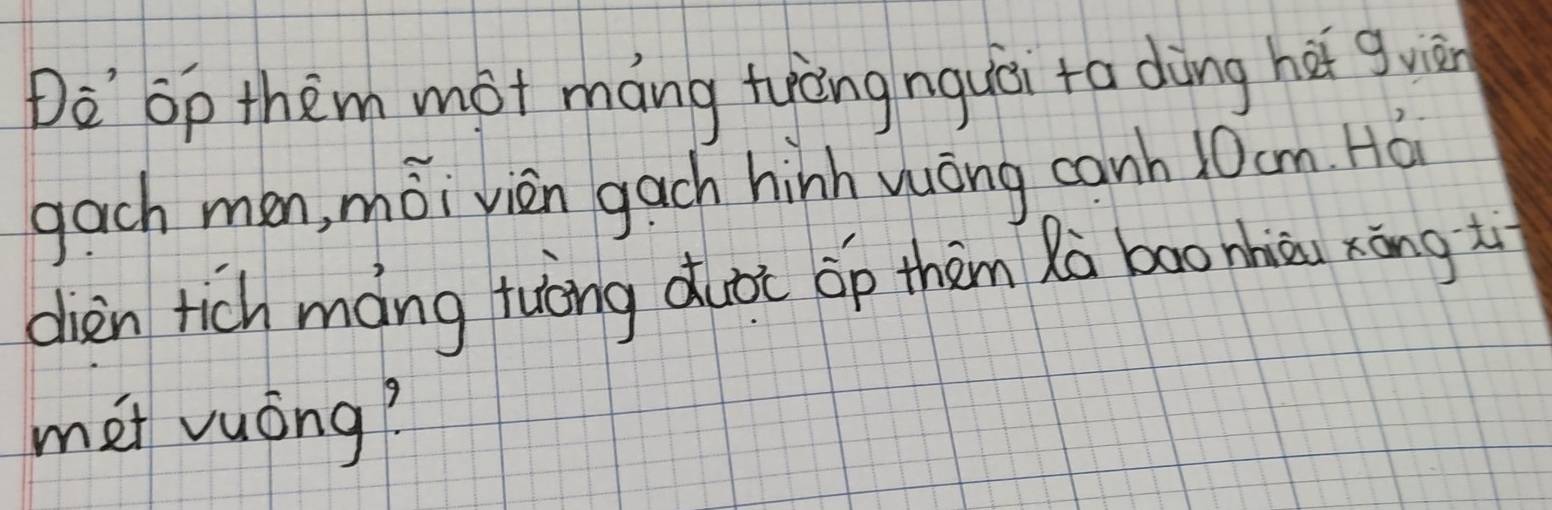 Để ốp thêm một mảng tường người ta dùng hết 9 viên
gạch men, mỗi viên gạch hình vuông cạnh 10cm. Hỏi
diện tích mảng tường được ốp thêm là bao nhiêu xăng-ti-
mét vuông?